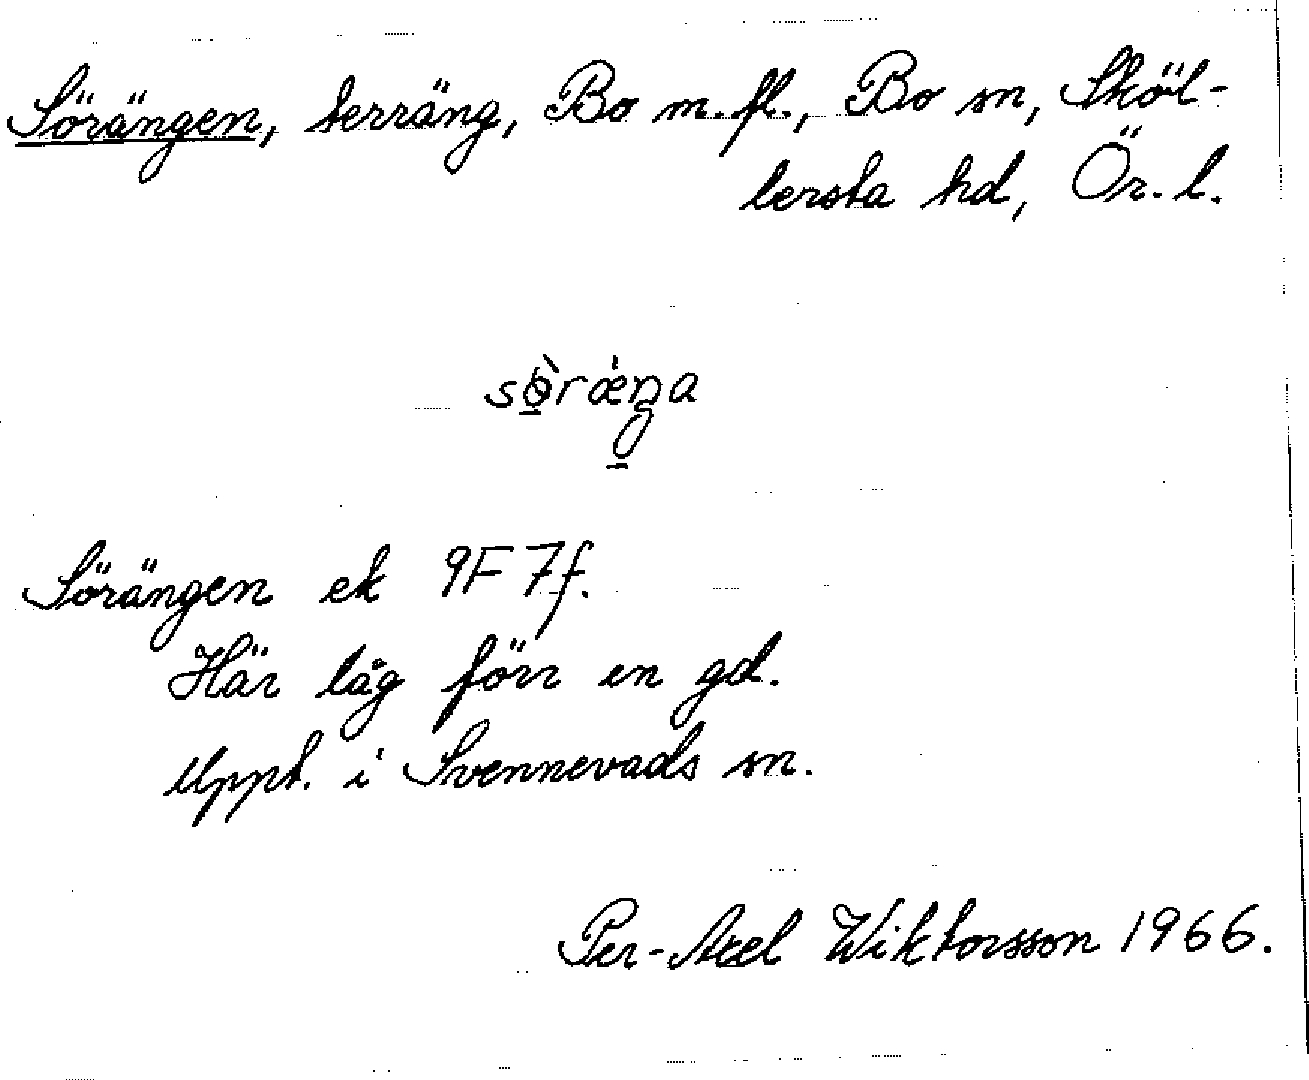 Sörängen, terräng, Bo m.fl., Bo sn, Sköl-
lersta hd, Ör. l.
sø̀ræ̀ŋa
Sörängen ek 9F 7f.
Här låg förr en gd.
Uppt. i Svennevads sn.
Per-Axel Wiktorsson 1966.